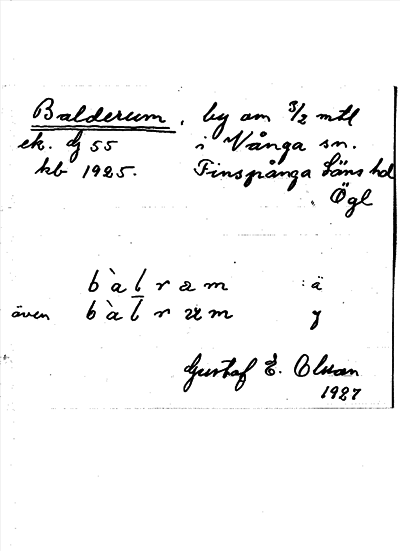 Balderum, by om 3/2 mtl
ek. bl 55 i Vånga sn.
kb 1925. Finspånga läns hd
Ögl
bàlram ä
även bàlrum y
Gustaf E. Olson
1927